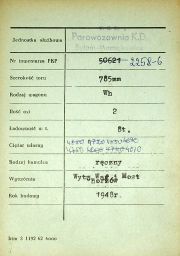 Jednostka służbowa
Parowozownia K.D.
Nr inwentarza PKP 50621 2258-6
Szerokość toru 785mm
Rodzaj wagonu Wb
Ilość osi 2
Ładowność w t. 8t.
Ciężar własny
Rodzaj hamulca ręczny
Wytwórnia Wytw. Wag. i Most
Chorzów
Rok budowy 1948r.